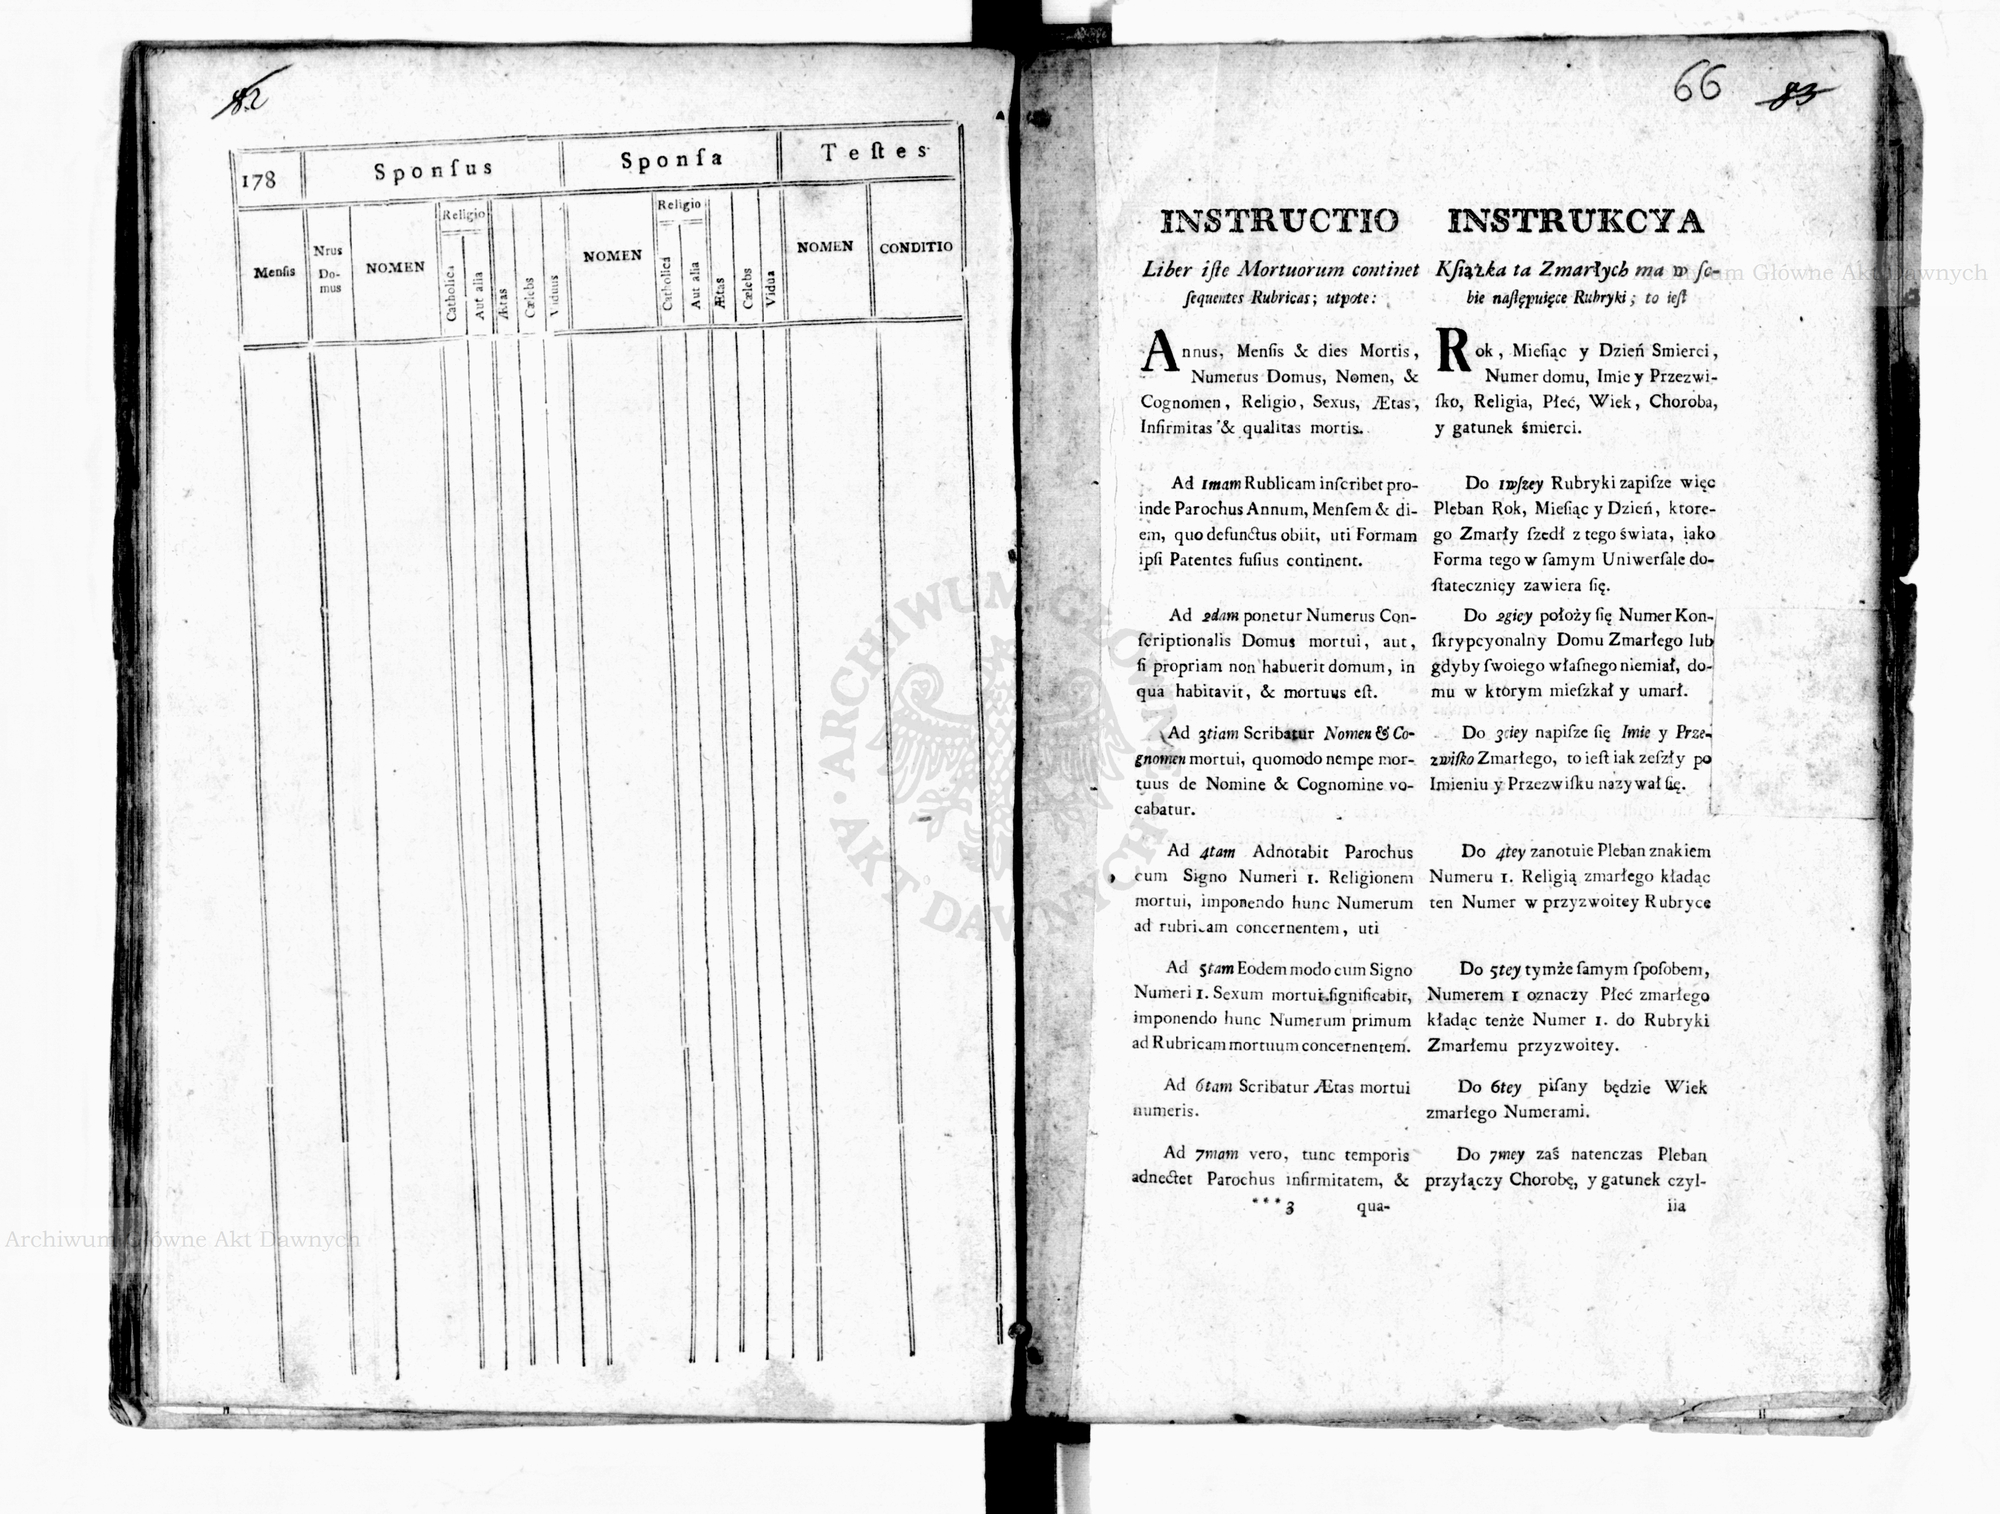 82
178
Sponſus
Sponſa
Teſtes
Menſis
Nrus
Do-
mus
NOMEN
Religio
Catholica
Aut alia
Ætas
Cælebs
Viduus
NOMEN
Religio
Catholica
Aut alia
Ætas
Cælebs
Vidua
NOMEN
CONDITIO
66 83
INSTRUCTIO
Liber iſte Mortuorum continet
ſequentes Rubricas; utpote:
Annus, Menſis & dies Mortis,
Numerus Domus, Nomen, &
Cognomen, Religio, Sexus, Ætas,
Infirmitas & qualitas mortis.
Ad 1mam Rublicam inſcribet pro-
inde Parochus Annum, Menſem & di-
em, quo defunctus obiit, uti Formam
ipſi Patentes fuſius continent.
Ad 2dam ponetur Numerus Con-
ſcriptionalis Domus mortui, aut,
ſi propriam non habuerit domum, in
qua habitavit, & mortuus eſt.
Ad 3tiam Scribatur Nomen & Co-
gnomen mortui, quomodo nempe mor-
tuus de Nomine & Cognomine vo-
cabatur.
Ad 4tam Adnotabit Parochus
cum Signo Numeri 1. Religionem
mortui, imponendo hunc Numerum
ad rubricam concernentem, uti
Ad 5tam Eodem modo cum Signo
Numeri 1. Sexum mortui ſignificabit,
imponendo hunc Numerum primum
ad Rubricam mortuum concernentem.
Ad 6tam Scribatur Ætas mortui
numeris.
Ad 7mam vero, tunc temporis
adnectet Parochus infirmitatem, &
***3 qua-
INSTRUKCYA
Kſiążka ta Zmarłych ma w ſe-
bie naſtępuięce Rubryki; to ieſt
Rok, Mieſiąc y Dzień Smierci,
Numer domu, Imie y Przezwi-
ſko, Religia, Płeć, Wiek, Choroba,
y gatunek śmierci.
Do 1wſzey Rubryki zapiſze więc
Pleban Rok, Mieſiąc y Dzień, ktore-
go Zmarły ſzedł z tego świata, iako
Forma tego w ſamym Uniwerſale do-
ſtateczniey zawiera ſię.
Do 2giey położy ſię Numer Kon-
ſkrypcyonalny Domu Zmarłego lub
gdyby ſwoiego właſnego niemiał, do-
mu w ktorym mieſzkał y umarł.
Do 3ciey napiſze ſię Imie y Prze-
zwiſko Zmarłego, to ieſt iak zeſzły po
Imieniu y Przezwiſku nazywał ſię.
Do 4tey zanotuie Pleban znakiem
Numeru 1. Religią zmarłego kładąc
ten Numer w przyzwoitey Rubryce
Do 5tey tymże ſamym ſpoſobem,
Numerem 1 oznaczy Płeć zmarłego
kładąc tenże Numer 1. do Rubryki
Zmarłemu przyzwoitey.
Do 6tey piſany będzie Wiek
zmarłego Numerami.
Do 7mey zaś natenczas Pleban
przyłączy Chorobę, y gatunek czyl-
iia
ARCHIWUM GŁÓWNE
AKT DAWNYCH
Archiwum Główne Akt Dawnych
Archiwum Główne Akt Dawnych